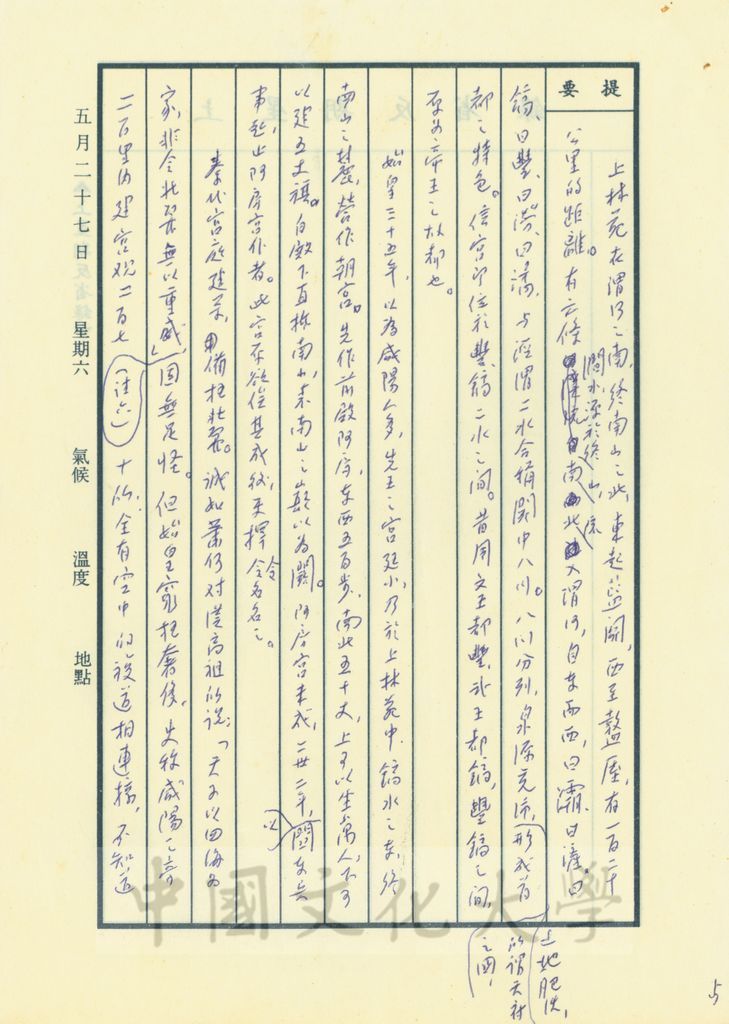 提要
上林苑在渭河之南,終南山之北,東起藍關,西至盩厔,有一百二十
公里的距離。有六條澗水源於終南山,流入渭河,自東而西,曰灞、曰滻、曰
鎬、曰豐、曰澇、曰潏,与涇渭二水合稱関中八川。八川分列,泉源充沛,土地肥沃,形成有所謂天府之國,
都之特色。信宮即位於豐鎬二水之间。昔周文王都豐,武王都鎬,豐鎬之间,
原为帝王之故都也。
始皇三十五年,以為咸陽人多,先王之宮廷小,乃於上林苑中、鎬水之東,終
南山之麓,營作朝宮。先作前殿阿房,东西五百步,南北五十丈,上可以坐萬人,下可
以建五丈旗。自殿下直抵南山,表南山之巔以為闕。阿房宮未成,二世二年,以關东兵
事起,止阿房宮作者。此宮本欲住其成後,更擇令名名之。
秦代宮庭建築,備極壯麗。誠如蕭何对漢高祖所说:「天子以四海为
家,非令壯麗無以重威」,固無足怪。但始皇窮極奢侈,史称咸陽之旁
二百里內建宮观二百七(註六)十所,全有空中的複道相連接,不知道
五月二十七日 星期六 氣候 溫度 地點
中國文化大學
5